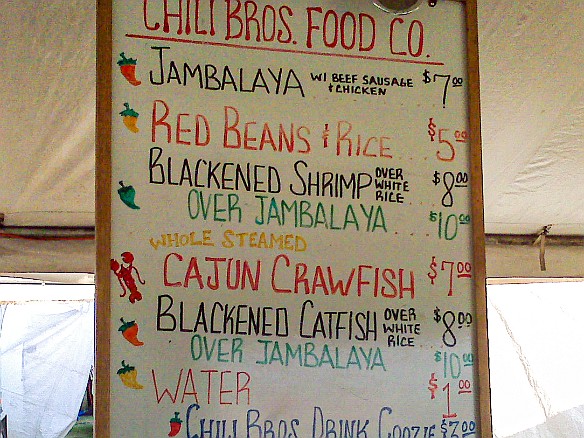 CHILI BROS. FOOD CO.
JAMBALAYA W/ BEEF SAUSAGE & CHICKEN $7.00
RED BEANS & RICE... $5.00
BLACKENED SHRIMP OVER WHITE RICE $8.00
OVER JAMBALAYA... $10.00
WHOLE STEAMED
CAJUN CRAWFISH $7.00
BLACKENED CATFISH OVER WHITE RICE $8.00
OVER JAMBALAYA $10.00
WATER $1.00
CHILI BROS. DRINK COOZIE $2.00